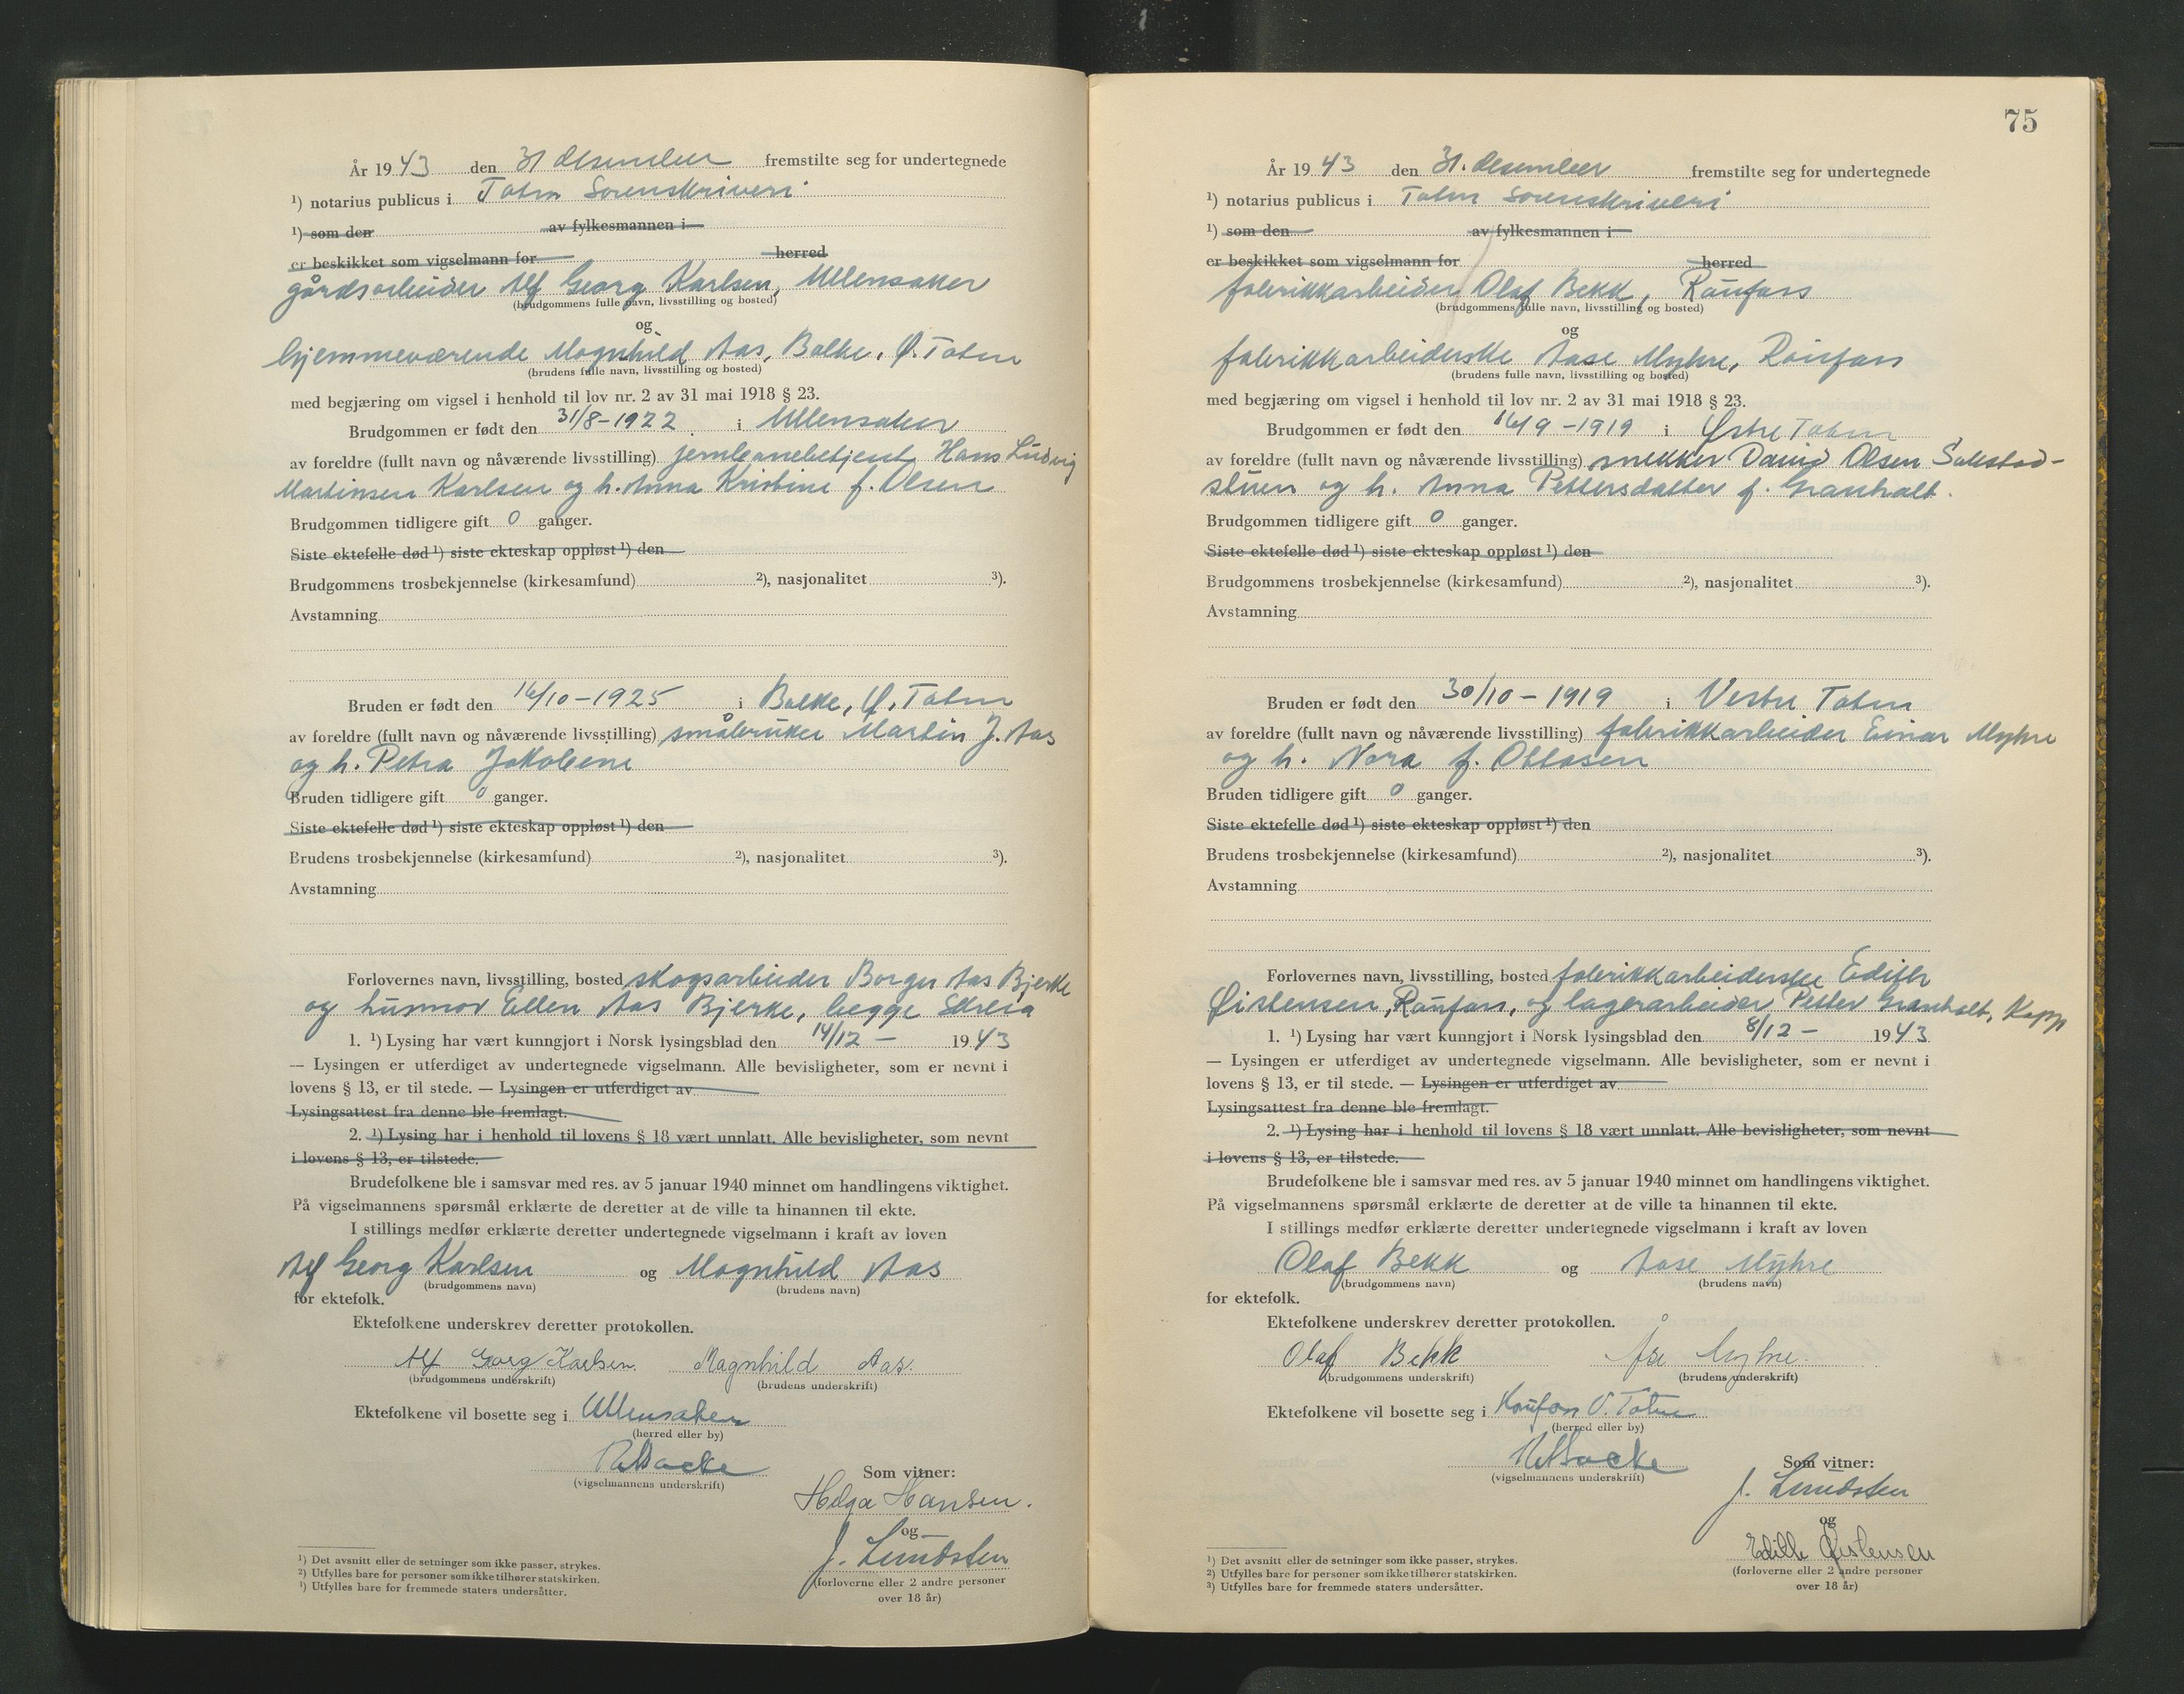 År 1943 den 31 desember fremstilte seg for undertegnede
¹) notarius publicus i Toten Sorenskriveri
¹) som den av fylkesmannen i
er beskikket som vigselmann for herred
gårdsarbeider Alf Georg Karlsen, Ullensaker
(brudgommens fulle navn, livsstilling og bosted)
og
hjemmeværende Magnhild Aas, Balke, Ø. Toten
(brudens fulle navn, livsstilling og bosted)
med begjæring om vigsel i henhold til lov nr. 2 av 31 mai 1918 § 23.
Brudgommen er født den 31/8-1922 i Ullensaker
av foreldre (fullt navn og nåværende livsstilling) jernbanebetjent Hans Ludvig
Martinsen Karlsen og h. Anna Kristine f. Olsen
Brudgommen tidligere gift 0 ganger.
Siste ektefelle død ¹) siste ekteskap oppløst ¹) den
Brudgommens trosbekjennelse (kirkesamfund) ²), nasjonalitet ³).
Avstamning
Bruden er født den 16/10-1925 i Balke, Ø. Toten
av foreldre (fullt navn og nåværende livsstilling) småbruker Martin J. Aas
og h. Petra Jakobine
Bruden tidligere gift 0 ganger.
Siste ektefelle død ¹) siste ekteskap oppløst ¹) den
Brudens trosbekjennelse (kirkesamfund) ²), nasjonalitet ³).
Avstamning
Forlovernes navn, livsstilling, bosted skogsarbeider Borger Aas Bjerke
og husmor Ellen Aas Bjerke, begge Skreia
1. ¹) Lysing har vært kunngjort i Norsk lysingsblad den 14/12 - 1943
— Lysingen er utferdiget av undertegnede vigselmann. Alle bevisligheter, som er nevnt i
lovens § 13, er til stede. — Lysingen er utferdiget av
Lysingsattest fra denne ble fremlagt.
2. ¹) Lysing har i henhold til lovens § 18 vært unnlatt. Alle bevisligheter, som nevnt
i lovens § 13, er tilstede.
Brudefolkene ble i samsvar med res. av 5 januar 1940 minnet om handlingens viktighet.
På vigselmannens spørsmål erklærte de deretter at de ville ta hinannen til ekte.
I stillings medfør erklærte deretter undertegnede vigselmann i kraft av loven
Alf Georg Karlsen og Magnhild Aas
(brudgommens navn) (brudens navn)
for ektefolk.
Ektefolkene underskrev deretter protokollen.
Alf Georg Karlsen. Magnhild Aas.
(brudgommens underskrift) (brudens underskrift)
Ektefolkene vil bosette seg i Ullensaker
(herred eller by)
(vigselmannens underskrift)
Som vitner:
Helga Hansen.
og
J. Lundsten
(forloverne eller 2 andre personer
over 18 år)
¹) Det avsnitt eller de setninger som ikke passer, strykes.
²) Utfylles bare for personer som ikke tilhører statskirken.
³) Utfylles bare for fremmede staters undersåtter.
75
År 1943 den 31. desember fremstilte seg for undertegnede
¹) notarius publicus i Toten sorenskriveri
¹) som den av fylkesmannen i
er beskikket som vigselmann for herred
fabrikkarbeider Olaf Bekk, Raufoss
(brudgommens fulle navn, livsstilling og bosted)
og
fabrikkarbeiderske Aase Myhre, Raufoss
(brudens fulle navn, livsstilling og bosted)
med begjæring om vigsel i henhold til lov nr. 2 av 31 mai 1918 § 23.
Brudgommen er født den 16/9 -1919 i Østre Toten
av foreldre (fullt navn og nåværende livsstilling) snekker David Olsen Sukstad-
stuen og h. Anna Pettersdatter f. Granholt.
Brudgommen tidligere gift 0 ganger.
Siste ektefelle død ¹) siste ekteskap oppløst ¹) den
Brudgommens trosbekjennelse (kirkesamfund) ²), nasjonalitet ³).
Avstamning
Bruden er født den 30/10 - 1919 i Vestre Toten
av foreldre (fullt navn og nåværende livsstilling) fabrikkarbeider Einar Myhre
og h. Nora f. Ottosen
Bruden tidligere gift 0 ganger.
Siste ektefelle død ¹) siste ekteskap oppløst ¹) den
Brudens trosbekjennelse (kirkesamfund) ²), nasjonalitet ³).
Avstamning
Forlovernes navn, livsstilling, bosted fabrikkarbeiderske Edith
Øistensen, Raufoss, og lagerarbeider Petter Granholt, Kapp
1. ¹) Lysing har vært kunngjort i Norsk lysingsblad den 8/12 - 1943
— Lysingen er utferdiget av undertegnede vigselmann. Alle bevisligheter, som er nevnt i
lovens § 13, er til stede. — Lysingen er utferdiget av
Lysingsattest fra denne ble fremlagt.
2. ¹) Lysing har i henhold til lovens § 18 vært unnlatt. Alle bevisligheter, som nevnt
i lovens § 13, er tilstede.
Brudefolkene ble i samsvar med res. av 5 januar 1940 minnet om handlingens viktighet.
På vigselmannens spørsmål erklærte de deretter at de ville ta hinannen til ekte.
I stillings medfør erklærte deretter undertegnede vigselmann i kraft av loven
Olaf Bekk og Aase Myhre
(brudgommens navn) (brudens navn)
for ektefolk.
Ektefolkene underskrev deretter protokollen.
Olaf Bekk Åse Myhre.
(brudgommens underskrift) (brudens underskrift)
Ektefolkene vil bosette seg i Raufoss V. Toten
(herred eller by)
(vigselmannens underskrift)
Som vitner:
J. Lundsten
og
Edith Øistensen
(forloverne eller 2 andre personer
over 18 år)
¹) Det avsnitt eller de setninger som ikke passer, strykes.
²) Utfylles bare for personer som ikke tilhører statskirken.
³) Utfylles bare for fremmede staters undersåtter.